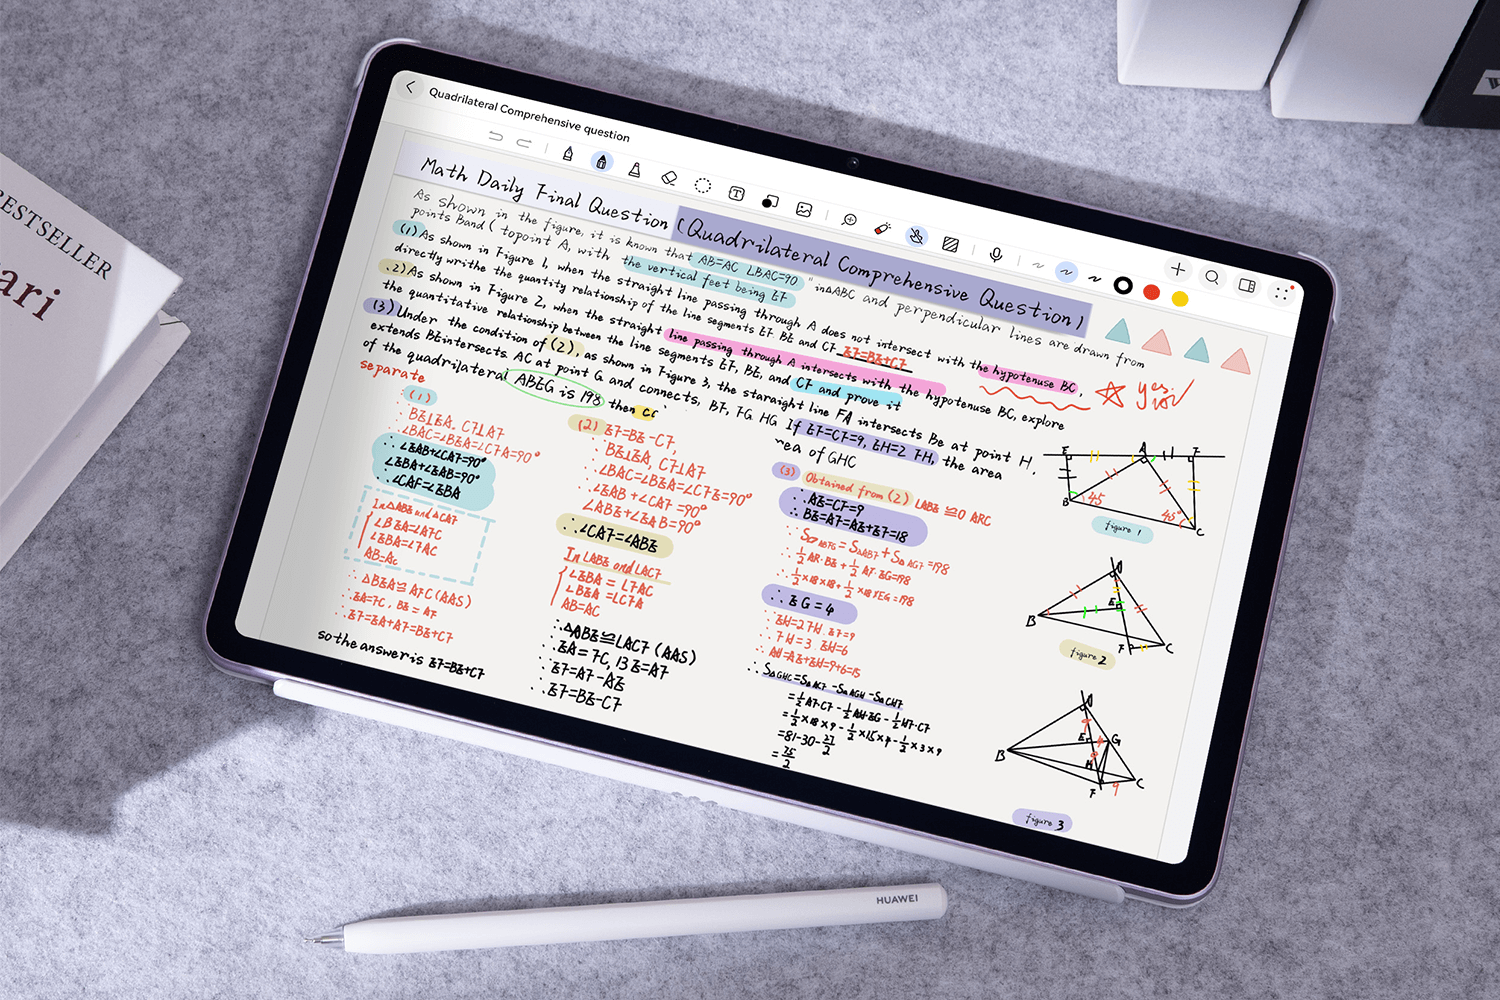 BESTSELLER
ari
W
Quadrilateral Comprehensive question
Math Daily Final Question (Quadrilateral Comprehensive Question)
As shown in the figure, it is known that AB=AC ∠BAC=90° in△ABC and perpendicular lines are drawn from
points Band ( topoint A, with the vertical feet being EF
(1) As shown in Figure 1, when the straight line passing through A does not intersect with the hypotenuse BC,
directly writhe the quantity relationship of the line segments EF. BE and CF EF=BE+CF
(2) As shown in Figure 2, when the straight line passing through A intersects with the hypotenuse BC, explore
the quantitative relationship between the line segments EF, BE, and CF and prove it
(3) Under the condition of (2), as shown in Figure 3, the staraight line FA intersects Be at point H,
extends BEintersects AC at point G and connects, BF, FG HG If EF=CF=9, EH=2 FH, the area
of the quadrilateral ABEG is 198 then
ea of GHC
yes.
separate
(1)
BE⊥EA, CF⊥AF
∠BAC=∠BEA=∠CFA=90°
∴ ∠EAB+∠CAF=90°
∠EBA+∠EAB=90°
∴ ∠CAF=∠EBA
In△ABE and △CAF
∠BEA=∠AFC
∠EBA=∠FAC
AB=AC
∴ △BEA≌AFC (AAS)
∴ EA=FC, BE=AF
∴ EF=EA+AF=BE+CF
so the answer is EF=BE+CF
(2) EF=BE-CF,
∵ BE⊥EA, CF⊥AF
∴ ∠BAC=∠BEA=∠CFE=90°
∴ ∠EAB+∠CAF=90°
∠ABE+∠EAB=90°
∴ ∠CAF=∠ABE
In ∠ABE and ∠ACF
∠EBA = ∠FAC
∠BEA = ∠CFA
AB=AC
∴ △ABE≌∠ACF (AAS)
∴ EA=FC, BE=AF
∴ EF=AF-AE
∴ EF=BE-CF
(3) Obtained from (2) ∠ABE≌D ARC
∴ AE=CF=9
∴ BE=AF=AE+EF=18
∴ S ABFG = S△ABF + S△AGF =198
∴ 1/2 AF·BE + 1/2 AF·EG=198
∴ 1/2 ×18×18+ 1/2 ×18×EG=198
∴ EG=4
∵ EH=2FH. EF=9
∴ FH=3 EH=6
∴ AH=AE+EH=9+6=15
∴ S△GHC=S△ACF-S△AGH-S△CHF
= 1/2 AF·CF - 1/2 AH·EG - 1/2 HF·CF
= 1/2 ×18×9 - 1/2 ×15×4 - 1/2 ×3×9
=81-30- 27/2
= 75/2
E A F
B 45 45° C
figure 1
A
B E
F C
figure 2
A
B E G
H
F 9 C
figure 3
HUAWEI